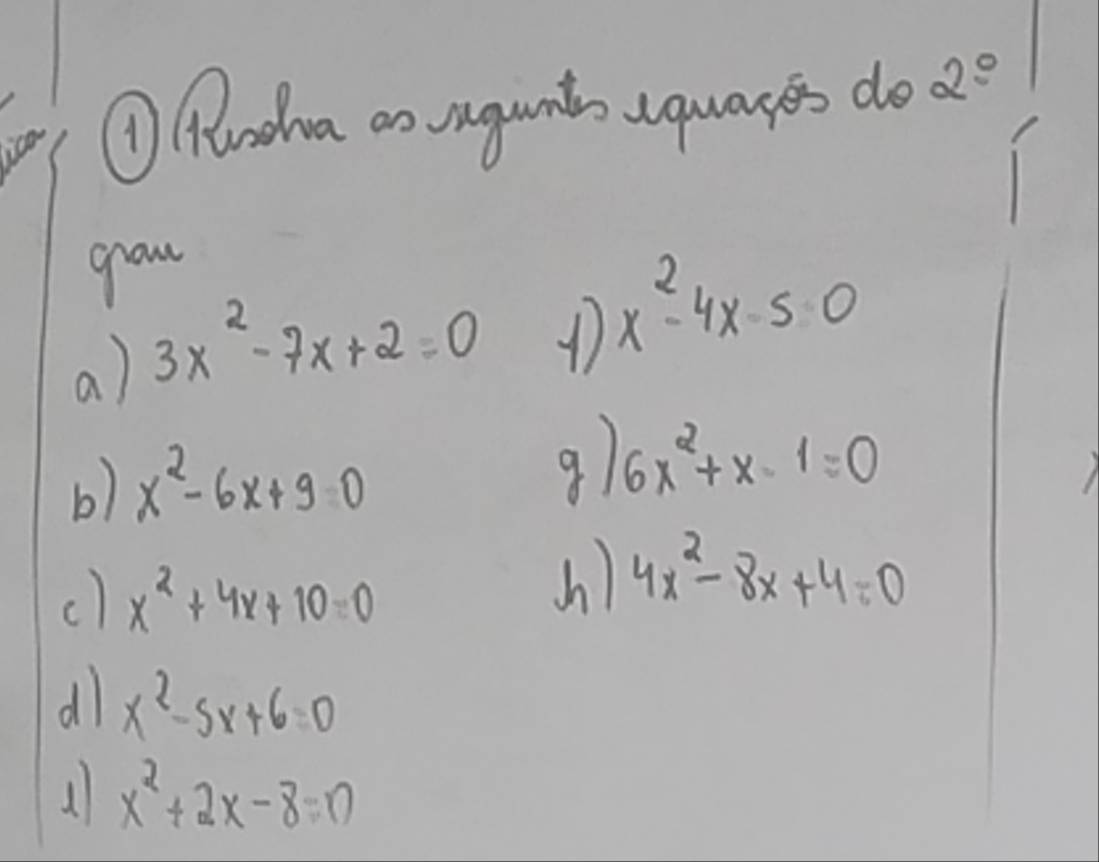 ① Resolva as seguintes equações do 2º
grau
a) 3x² - 7x + 2 = 0
b) x² - 6x + 9 = 0
c) x² + 4x + 10 = 0
d) x² - 5x + 6 = 0
e) x² + 2x - 8 = 0
f) x² - 4x - 5 = 0
g) 6x² + x - 1 = 0
h) 4x² - 8x + 4 = 0